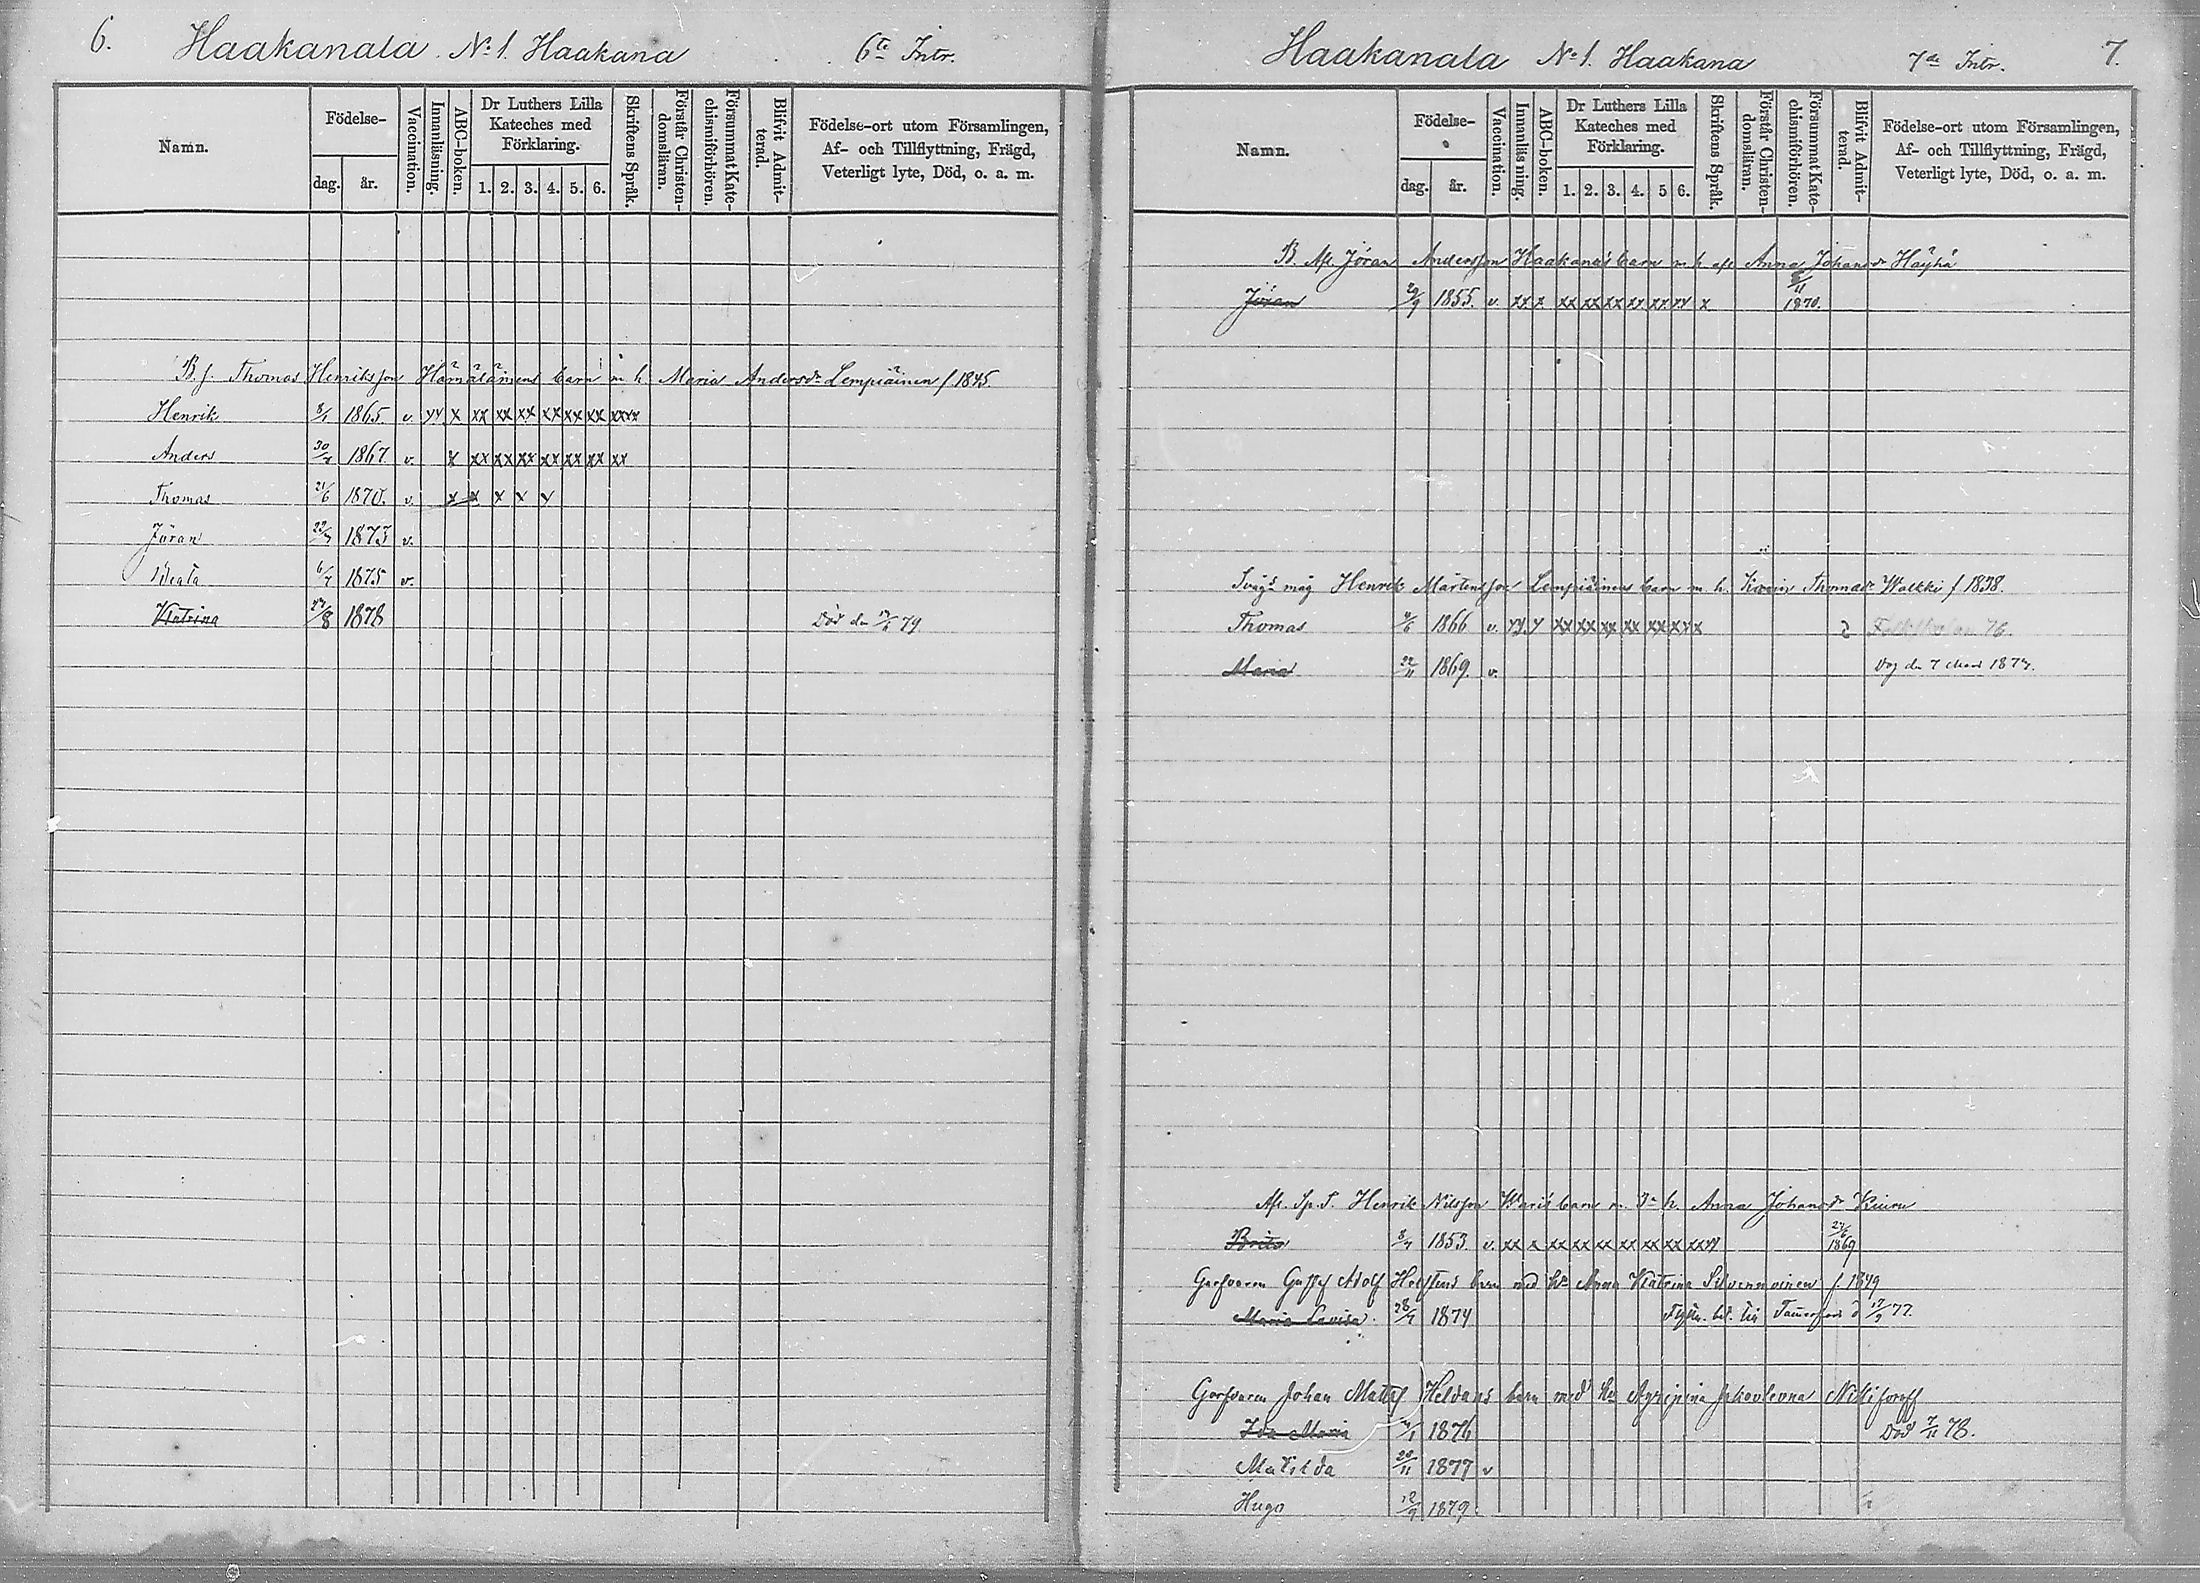 6. Haakanala. No 1. Haakana 6te Intr.
Namn.
Födelse-
dag.
år.
Vaccination.
Innanläsning.
ABC-boken.
Dr Luthers Lilla
Kateches med
Förklaring.
1. 2. 3. 4. 5. 6.
Skriftens Språk.
Förstår Christen-
domsläran.
Försummat Kate-
chismiförhören.
Blifvit Admit-
terad.
Födelse-ort utom Församlingen,
Af- och Tillflyttning, Frägd,
Veterligt lyte, Död, o. a. m.
B. f. Thomas Henriksson Hämäläinens barn m h Maria Andersdr Lempiäinen f 1845
Henrik 8/1 1865. v. xx x xx xx xx xx xx xx xxxx
Anders 1867 v. x xx xx xx xx xx xx xx
Thomas 21/6 1870. v. x x x x x
Jöran 1873 v.
Beata 1875 v.
Katrina 1878 Död den 79
Haakanala No 1. Haakana 7de Intr. 7.
Namn.
Födelse-
dag.
år.
Vaccination.
Innanläsning.
ABC-boken.
Dr Luthers Lilla
Kateches med
Förklaring.
1. 2. 3. 4. 5 6.
Skriftens Språk.
Förstår Christen-
domsläran.
Försummat Kate-
chismiförhören.
Blifvit Admit-
terad.
Födelse-ort utom Församlingen,
Af- och Tillflyttning, Frägd,
Veterligt lyte, Död, o. a. m.
B. Afl. Jöran Andersson Haakanas barn m h afl Anna Johansdr Häyhä
Jöran 29/9 1855. v. xx x xx xx xx xx xx xx x 1870.
Svåg. måg Henrik Mårtensson Lempiäinens barn m. h. Thomasdr Walkki f 1838.
Thomas 1866 v. xx x xx xx xx xx xx xx x Folkskolan 76.
Maria 22/11 1869. v. Dog den 7 1874.
Afl. Henrik Nilsson barn m. h. Anna Johansdr Kiuru
Brita 1853. v. xx x xx xx xx xx xx xx 1869
Garfvaren Gustaf Adolf barn med hu Anna Katrina Silvennoinen f 1849
Maria Lovisa. 1874 till Tammerfors d 77.
Garfvaren Johan Matts Heldans barn med hu Agripina Jakovlevna Nikiforoff
Ida Maria 1876 Död 7/11 78.
Matilda 20/11 1877 v
Hugo 12/9 1879.